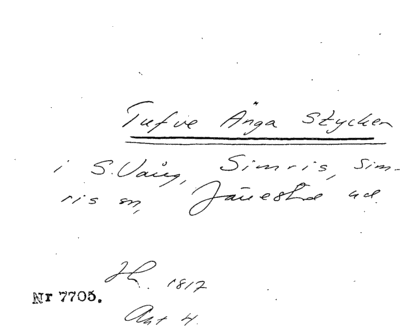 Tufve Ånga Stycken
i S. Vång, Simris, Sim-
ris sn, Järrestad hd.
1817
Akt 4.
Nr 7705.